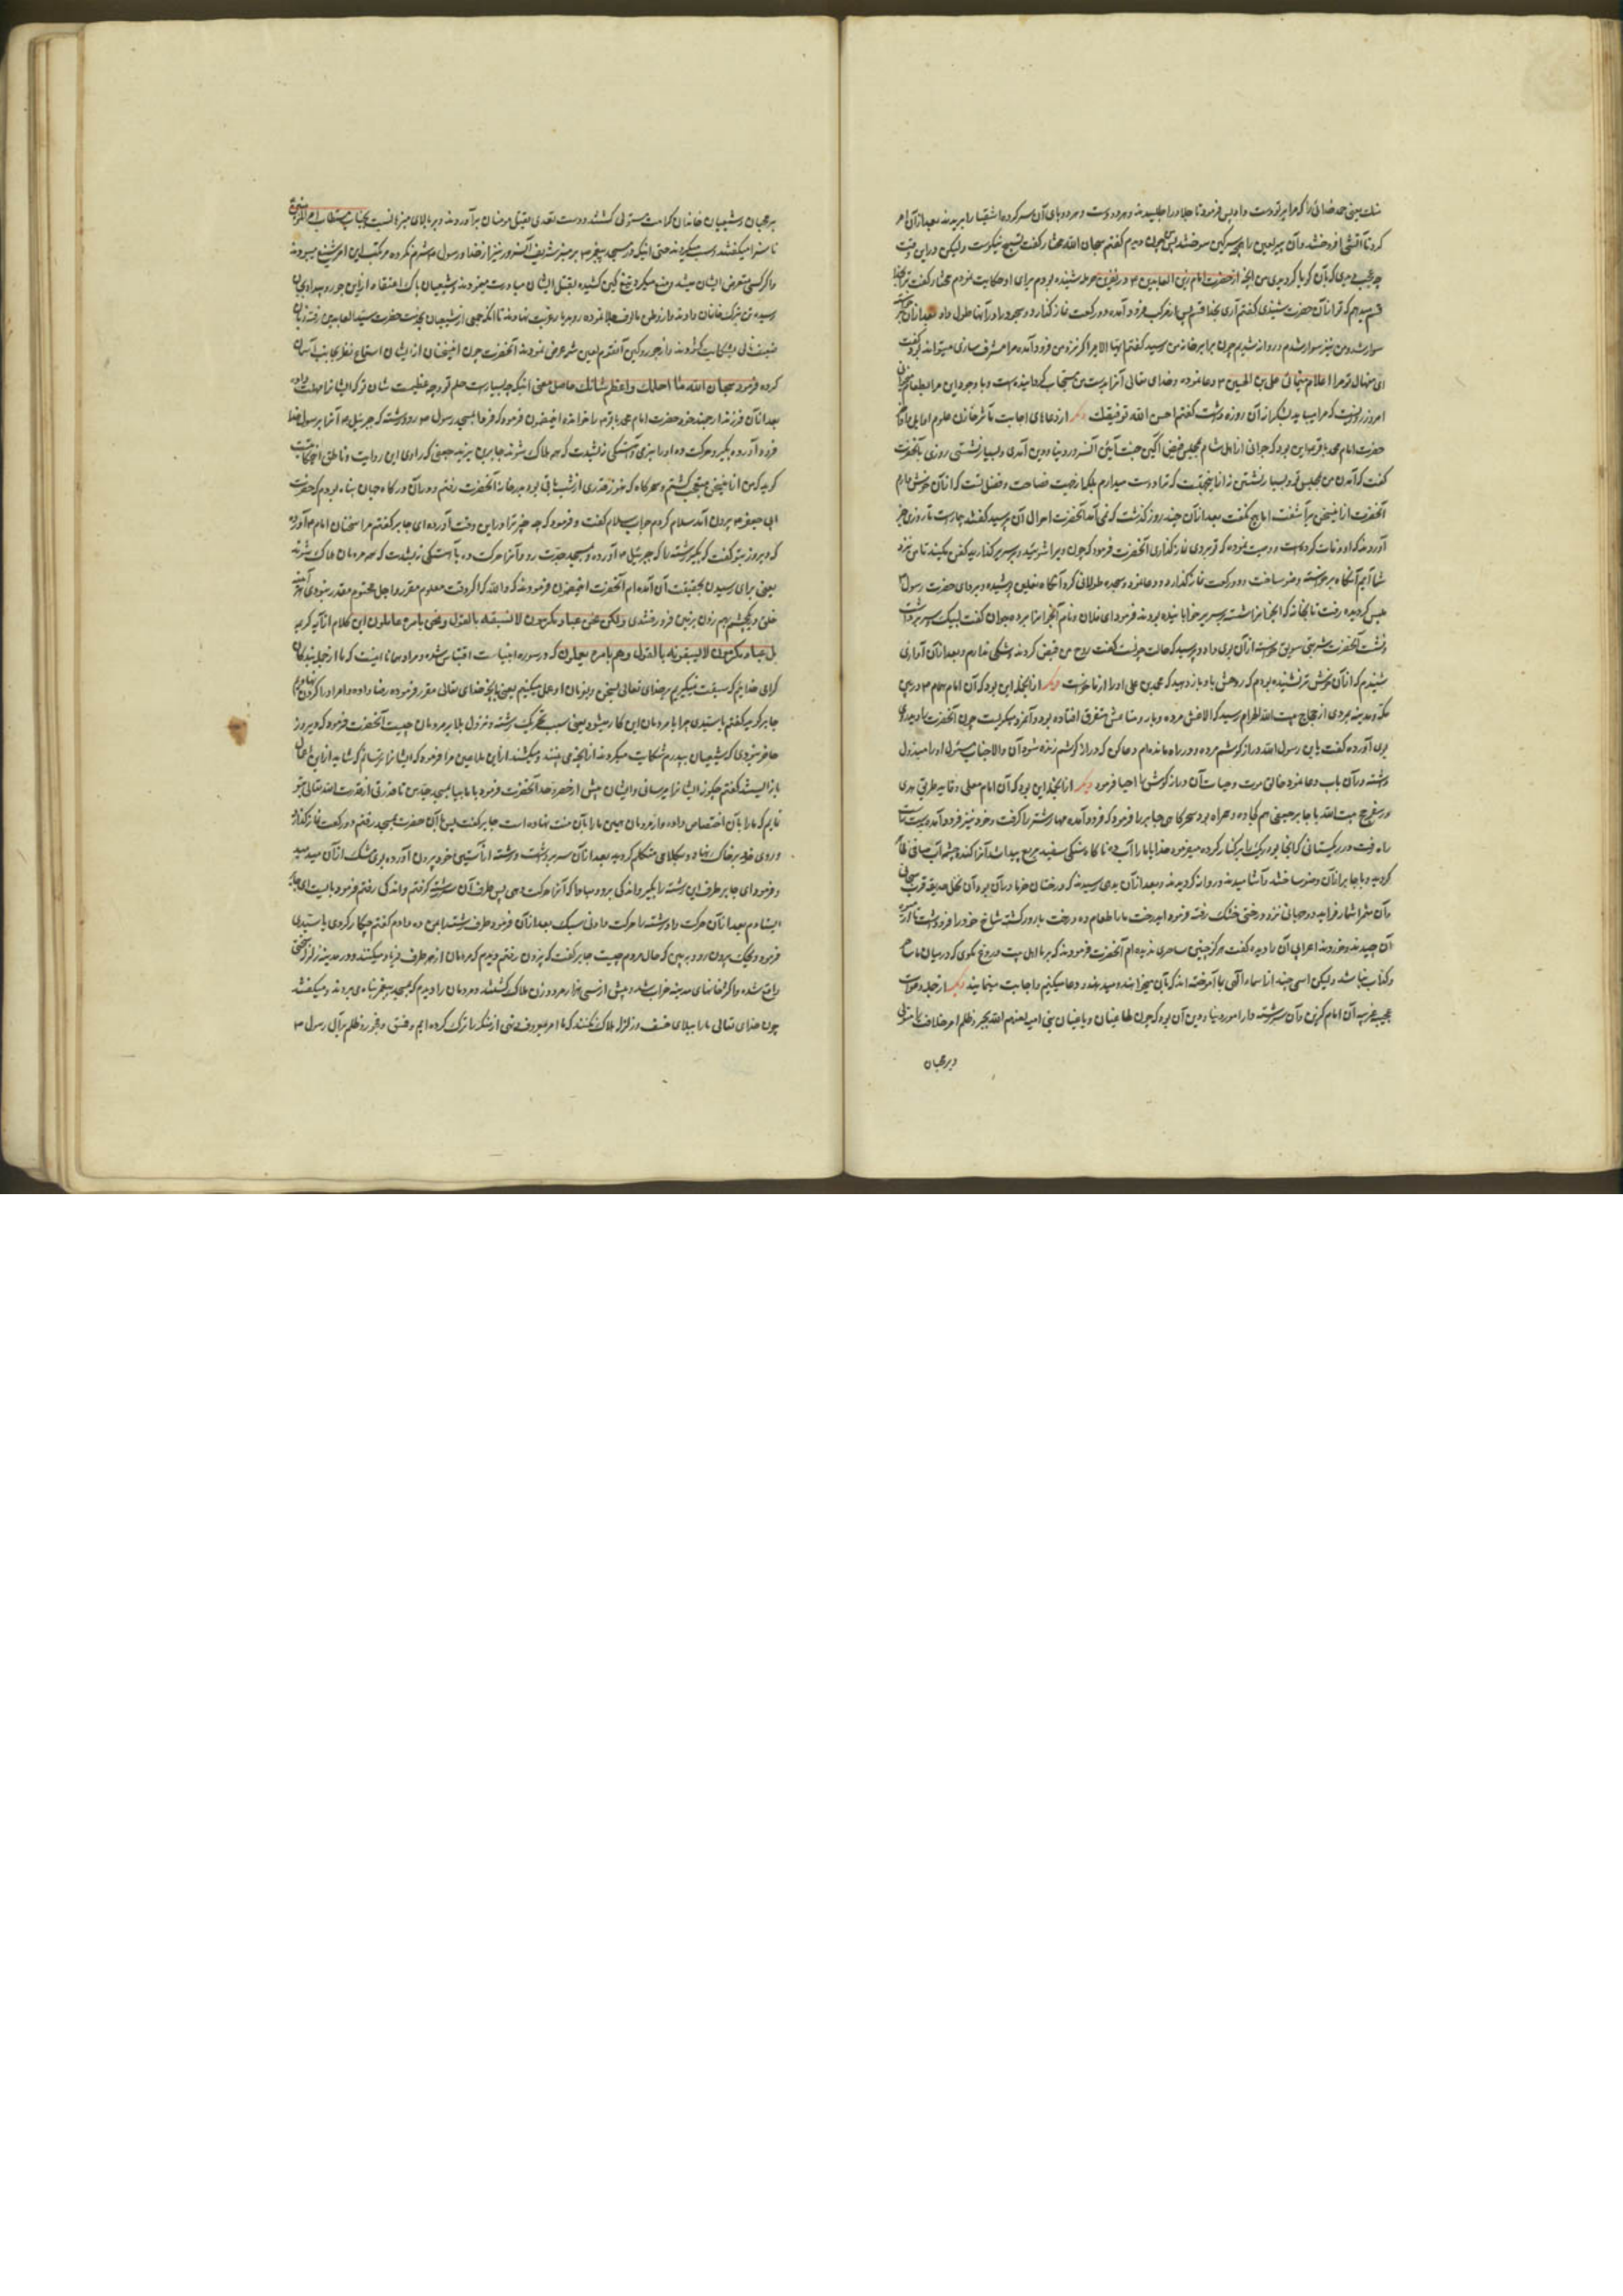 شك یعنی حمد خدائی را که مرا بر تو دست داد پس فرمود تا جلاد را طلبیدند و هر دو دست و هر دو پای آن سر کرده اشقیا را بریدند بعد از آن امر
کرد تا آتشی افروختند و آن بی دین را سوختند چون دیدم گفتم سبحان الله مختار گفت تسبیح نیکوست ولیکن درین وقت
از حضرت امام زین العابدین در نفرین حرمله شنیده بودم برای او حکایت نمودم مختار گفت
قسم میدهم که تو از آن حضرت شنیدی گفتم آری بخدا قسم پس از مرکب فرود آمده دو رکعت نماز گذارد و سجده را در آنها طول داد بعد از آن
سوار شد و من نیز سوار شدم و روانه شدیم چون برابر خانه من رسید گفتم ایها الامیر اگر نزد من فرود آمده مرا مشرف سازی میتواند بود گفت
ای منهال تو مرا اعلام مینمائی علی بن الحسین دعا نموده و خدای تعالی آنرا بدست من مستجاب گردانیده است و با وجود این مرا بطعام میخوانی
امروز روزیست که مرا میباید بشکرانه آن روزه داشت گفتم احسن الله توفیقك دیگر از دعاهای اجابت تأثیر خازن علوم
حضرت امام محمد باقر این بود که جوانی از اهل شام بمجلس فیض آگین جنت آئین آنسرور دنیا و دین آمدی و بسیار نشستی روزی بآنحضرت
گفت که آمدن من بمجلس تو و بسیار نشستن نه از اینجهتست که ترا دوست میدارم بلکه از جهت فصاحت و فضل تست که از آن خوش دارم
آنحضرت از اینسخن برآشفت اما هیچ نگفت بعد از آن چند روز گذشت که نمی آمد آنحضرت احوال آن پرسید گفتند بیمارست تا روزی خبر
آوردند که او وفات کرده است و وصیت نموده که تو بروی نماز گذاری آنحضرت فرمود که چون ویرا شوئید و بر سریر گذارید کفن مکنید تا من نزد
شما آیم آنگاه برخاسته وضو ساخت و دو رکعت نماز گذارد و دعا نمود و سجده طولانی کرد آنگاه نعلین پوشیده و ردای حضرت رسول
گردیده رفت تا بخانه که آنجا بر سریر خوابانیده بودند فرمود ای فلان و نام آنجوانرا برد جوان گفت لبیك و سر برداشت
و نشست آنحضرت شربتی سویق خواسته از آن بوی داد و پرسید که حالت چونست گفت روح من قبض کردند و شکی ندارم و بعد از آن آوازی
شنیدم که از آن خوشتر نشنیده بودم که روحش باو باز دهید که محمد بن علی او را از ما خواست دیگر از انجمله این بود که آن امام همام در بین
مکه و مدینه بمردی از حجاج بیت الله الحرام رسید که الاغش مرده و بار و متاعش متفرق افتاده بود و آنمرد میگریست چون آنحضرت را دید
بوی آورده گفت یا بن رسول الله دراز گوشم مرده و در راه مانده ام دعا کن که دراز گوشم زنده شود آن والاجناب مسئول او را مبذول
داشته در آن باب دعا نمود خالق موت و حیات آن دراز گوش را احیا فرمود دیگر از انجمله این بود که آن امام معلی
در سفر حج بیت الله با جابر جعفی هم کجاوه و همراه بود سحرگاهی جابر را فرمود که فرود آمده مهار شتر را گرفت و خود نیز فرود آمد
راه رفت در ریگستانی که آنجا بود ریگ را بر کنار کرده میفرمود خدایا ما را آب ده ناگاه سنگی سفید مربع پیدا شد آنرا کنده چشمه آب صافی ظاهر
گردید و با جابر از آن وضو ساختند و آشامیدند و روانه گردیدند و بعد از آن بدهی رسیدند که درختان خرما در آن بود و آن نخل حدیقه
و آن ثمر درختی خشک رفته فرمود ایدرخت ما را طعام ده درخت بارور گشته شاخ خود را فرو داشت تا از
آن چیدند و خوردند اعرابی آن را دیده گفت هرگز چنین ساحری ندیده ام آنحضرت فرمودند که بر ما اهل بیت دروغ مگوی که در میان ما ساحر
و کذاب نباشد ولیکن اسمی چند از اسماء الهی بما آموخته اند که بآن میخوانند و میدهند و دعا میکنیم و اجابت مینماید دیگر از جمله دعوات
عجیب غریب آن امام گزین و آن سررشته دار امور دنیا و دین آن بود که چون طاغیان و باغیان بنی امیه لعنهم الله بجور و ظلم امر خلافت را متولی
و بر محبان
بر محبان و شیعیان خاندان کرامت مستولی گشتند و دست تعدی بقتل مؤمنان برآوردند و بر بالای منبرها نسبت بجناب مستطاب امیر المؤمنین
ناسزا میگفتند و سب میکردند حتی آنکه در مسجد پیغمبر بر منبر شریف آنسرور نیز از خدا و رسول شرم نکرده مرتکب این امر شنیع میبودند
و اگر کسی متعرض ایشان میشد و منع میکرد تیغ کین کشیده بقتل ایشان مبادرت مینمودند و شیعیان پاک اعتقاد از این جور و بیداد بجان
رسیده تن بترک خانمان دادند و از وطن مألوف جلا نموده رو بغربت نهادند تا آنکه جمعی از شیعیان بخدمت حضرت سید العابدین رفته زبان
بشکایت گشودند و از جور و کین آنقوم لعین شمه عرض نمودند آنحضرت چون اینسخنان از ایشان استماع نظری بجانب آسمان
کرده فرمود سبحان الله ما احلمك و اعظم شانك حاصل معنی آنکه چه بسیارست حلم تو و چه عظیمست شان تو که ایشانرا مهلت داده
بعد از آن فرزند ارجمند خود حضرت امام محمد باقر را خوانده اینمضمون فرمود که فردا بمسجد رسول رو و رشته که جبرئیل آنرا بر رسول خدا
فرود آورده بگیر و حرکت ده او را بنرمی و آهستگی نه بشدت که همه هلاک شوند جابر بن یزید جعفی که راوی این روایت و ناطق اینحکایتست
گوید که من از اینسخن متعجب گشتم و سحرگاه که هنوز قدری از شب باقی بود بدر خانه آنحضرت رفتم و در آن درگاه جهان پناه بودم که حضرت
ابی جعفر بیرون آمد سلام کردم جواب سلام گفت و فرمود که چه چیز ترا در این وقت آورده ای جابر گفتم مرا سخنان امام آورده
که دیروز بتو گفت که بگیر رشته را که جبرئیل آورده و بمسجد جدت رو و آنرا حرکت ده بآهستگی نه بشدت که همه مردمان هلاک شوند
یعنی برای رسیدن بحقیقت آن آمده ام آنحضرت اینمضمون فرمودند که والله که اگر وقت معلوم مقرر و اجل محتوم مقدر نبودی آنکه
خلق بیکچشم بهم زدن بزمین فرو رفتندی ولکن نحن عباد مکرمون لا نسبقه بالقول و نحن بامره عاملون این کلام از آیه کریمه
بل عباد مکرمون لا یسبقونه بالقول و هم بامره یعملون که در سوره انبیاست اقتباس شده و مراد همانا اینست که ما از جمله بندگان
گرامی خدایم که سبقت نمیگیریم بر خدای تعالی بسخن و بفرمان او عمل میکنیم یعنی بآنچه خدای تعالی مقرر فرموده رضا داده و امر او را گردن نهادیم
جابر گوید گفتم یا سیدی چرا با مردمان این کار میشود یعنی سبب تحریک رشته و نزول بلا بر مردمان چیست آنحضرت فرمود که دیروز
حاضر نبودی که شیعیان بپدرم شکایت میکردند از آنچه می بینند و میکشند از این ملاعین مرا فرموده که ایشانرا ترسانم که شاید از این
باز ایستند گفتم چگونه ایشانرا میرسانی و ایشان بیش از حصر و حد اند آنحضرت فرمود با ما بیا بمسجد جدم تا قدرتی از قدرت الله تعالی بتو
نمایم که ما را بآن اختصاص داده و از مردمان همین ما را بآن منت نهاده است جابر گفت پس با آن حضرت بمسجد رفتم دو رکعت نماز گذارد
و روی خود بر خاک نهاد و بکلامی متکلم گردید بعد از آن سر برداشت و رشته از آستین خود بیرون آورده بوی مشک از آن میدمید
و فرمود ای جابر طرف این رشته را بگیر و اندکی برو و مبادا که آنرا حرکت دهی پس طرف آن رشته گرفتم و اندکی رفتم فرمود بایست ای جابر
ایستادم بعد از آن حرکت داد رشته را حرکت دادنی سبک بعد از آن فرمود طرف رشته را بمن ده دادم گفتم چکار کردی یا سیدی
فرمود ویحک بیرون رو و ببین که حال مردم چیست جابر گفت که بیرون رفتم دیدم که مردمان از هر طرف فریاد میکنند و در مدینه زلزله سختی
واقع شده و اکثر خانهای مدینه خراب شد و بیش از سی هزار مرد و زن هلاک گشتند و مردمان را دیدم که بمسجد پیغمبر پناه می بردند و میگفتند
چون خدای تعالی ما را ببلای خسف و زلزله هلاک نکند که ما امر بمعروف و نهی از منکر را ترک کرده ایم و فسق و فجور و ظلم بر آل رسول